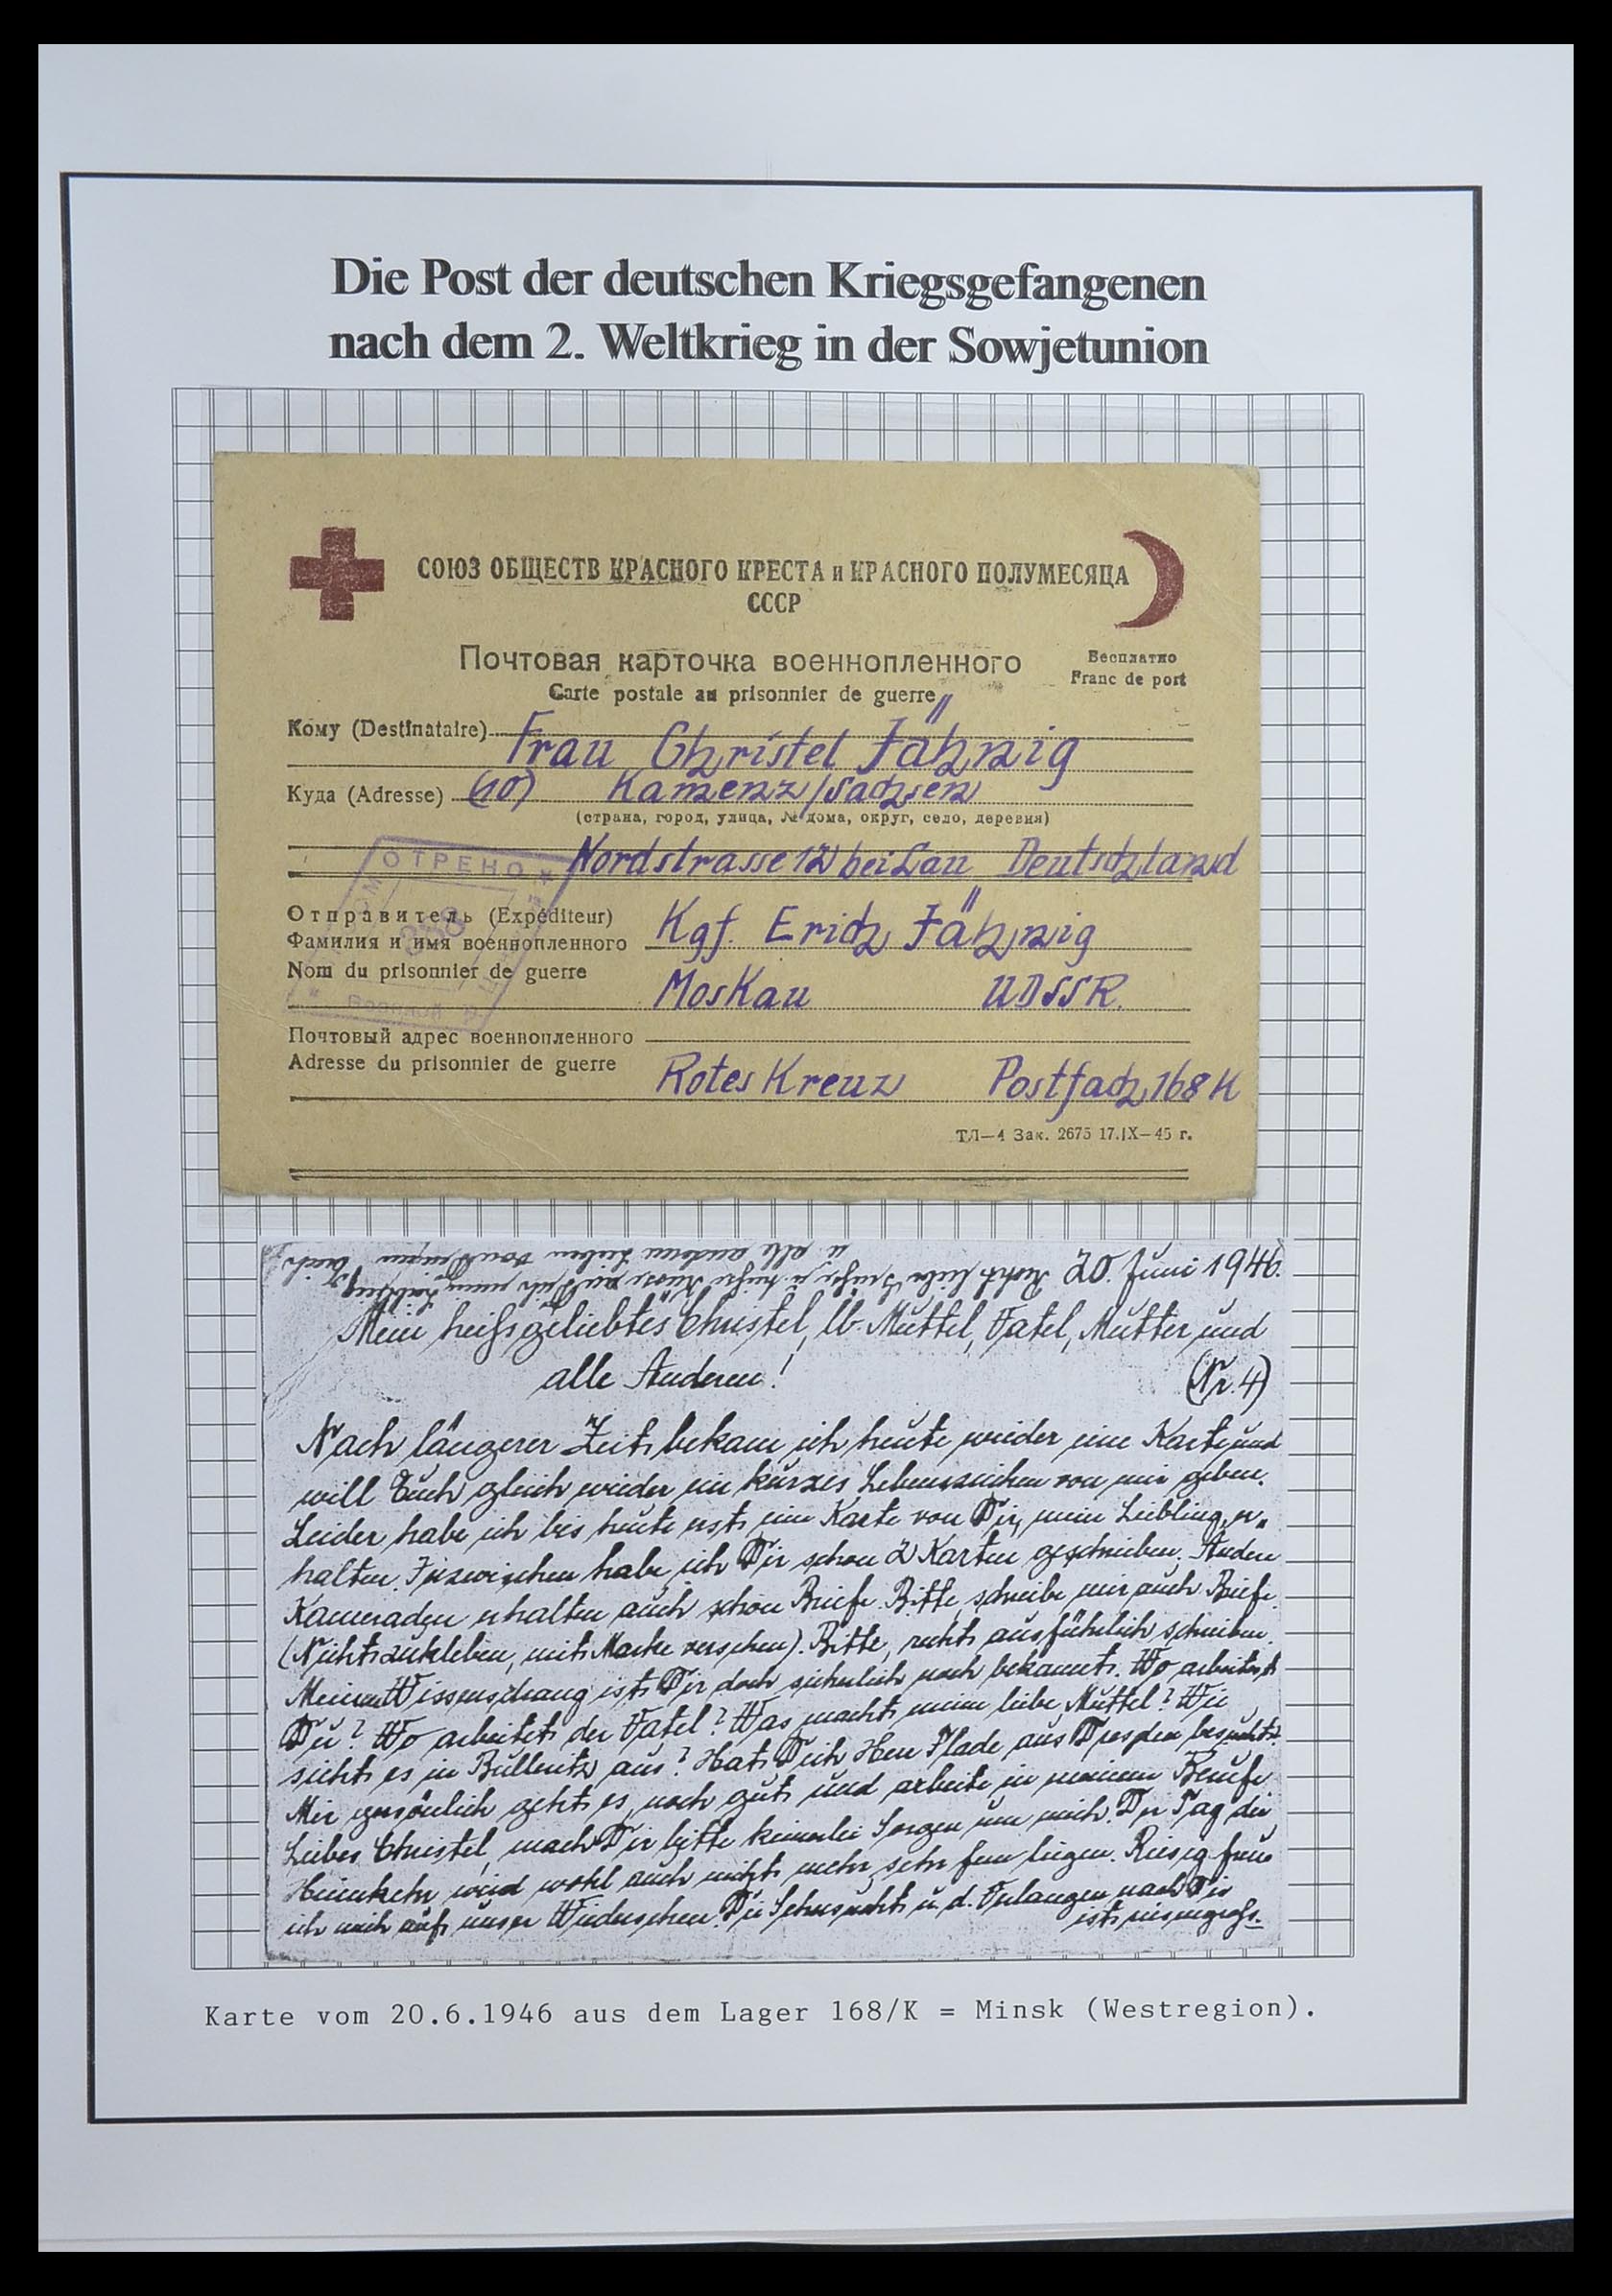 Die Post der deutschen Kriegsgefangenen
nach dem 2. Weltkrieg in der Sowjetunion
СОЮЗ ОБЩЕСТВ КРАСНОГО КРЕСТА и КРАСНОГО ПОЛУМЕСЯЦА
СССР
Почтовая карточка военнопленного
Бесплатно
Carte postale au prisonnier de guerre
Franc de port
Кому (Destinataire) Frau Christel Jähnig
Куда (Adresse) (10) Kamenz/Sachsen
(страна, город, улица, № дома, округ, село, деревня)
Nordstrasse 12 bei Lau Deutschland
ОТРЕНО
Отправитель (Expéditeur)
Фамилия и имя военнопленного Kgf. Erich Jähnig
Nom du prisonnier de guerre
Moskau UDSSR.
Почтовый адрес военнопленного
Adresse du prisonnier de guerre
Rotes Kreuz Postfach 168 K
ТЛ—4 Зак. 2675 17.IX—45 г.
20. Juni 1946.
Mein heißgeliebtes Christel, lb. Muttel, Vatel, Mutter und
alle Anderen!
(Nr. 4)
Nach längerer Zeit bekam ich heute wieder eine Karte und
will Euch gleich wieder ein kurzes Lebenszeichen von mir geben.
Leider habe ich bis heute erst eine Karte von Dir, mein Liebling, er„
halten. Inzwischen habe ich Dir schon 2 Karten geschrieben. Andere
Kameraden erhalten auch schon Briefe. Bitte, schreibe mir auch Briefe.
(Nicht zukleben, mit Marke versehen). Bitte, recht ausführlich schreiben.
Meinen Wissensdrang ist Dir doch sicherlich noch bekannt. Wo arbeitest
Du? Wo arbeitet der Vatel? Was macht meine liebe Muttel? Wie
sieht es in Bulleritz aus? Hat Dich Herr Flade aus Dresden besucht?
Mir persönlich geht es noch gut und arbeite in meinem Berufe.
Liebes Christel, mach Dir bitte keinerlei Sorgen um mich. Der Tag der
Heimkehr wird wohl auch nicht mehr sehr fern liegen. Riesig freue
ich mich auf unser Wiedersehen. Die Sehnsucht u. d. Verlangen nach Dir
ist riesengroß.
Recht liebe Grüße u. heiße Küsse
u. alle anderen Lieben
Karte vom 20.6.1946 aus dem Lager 168/K = Minsk (Westregion).